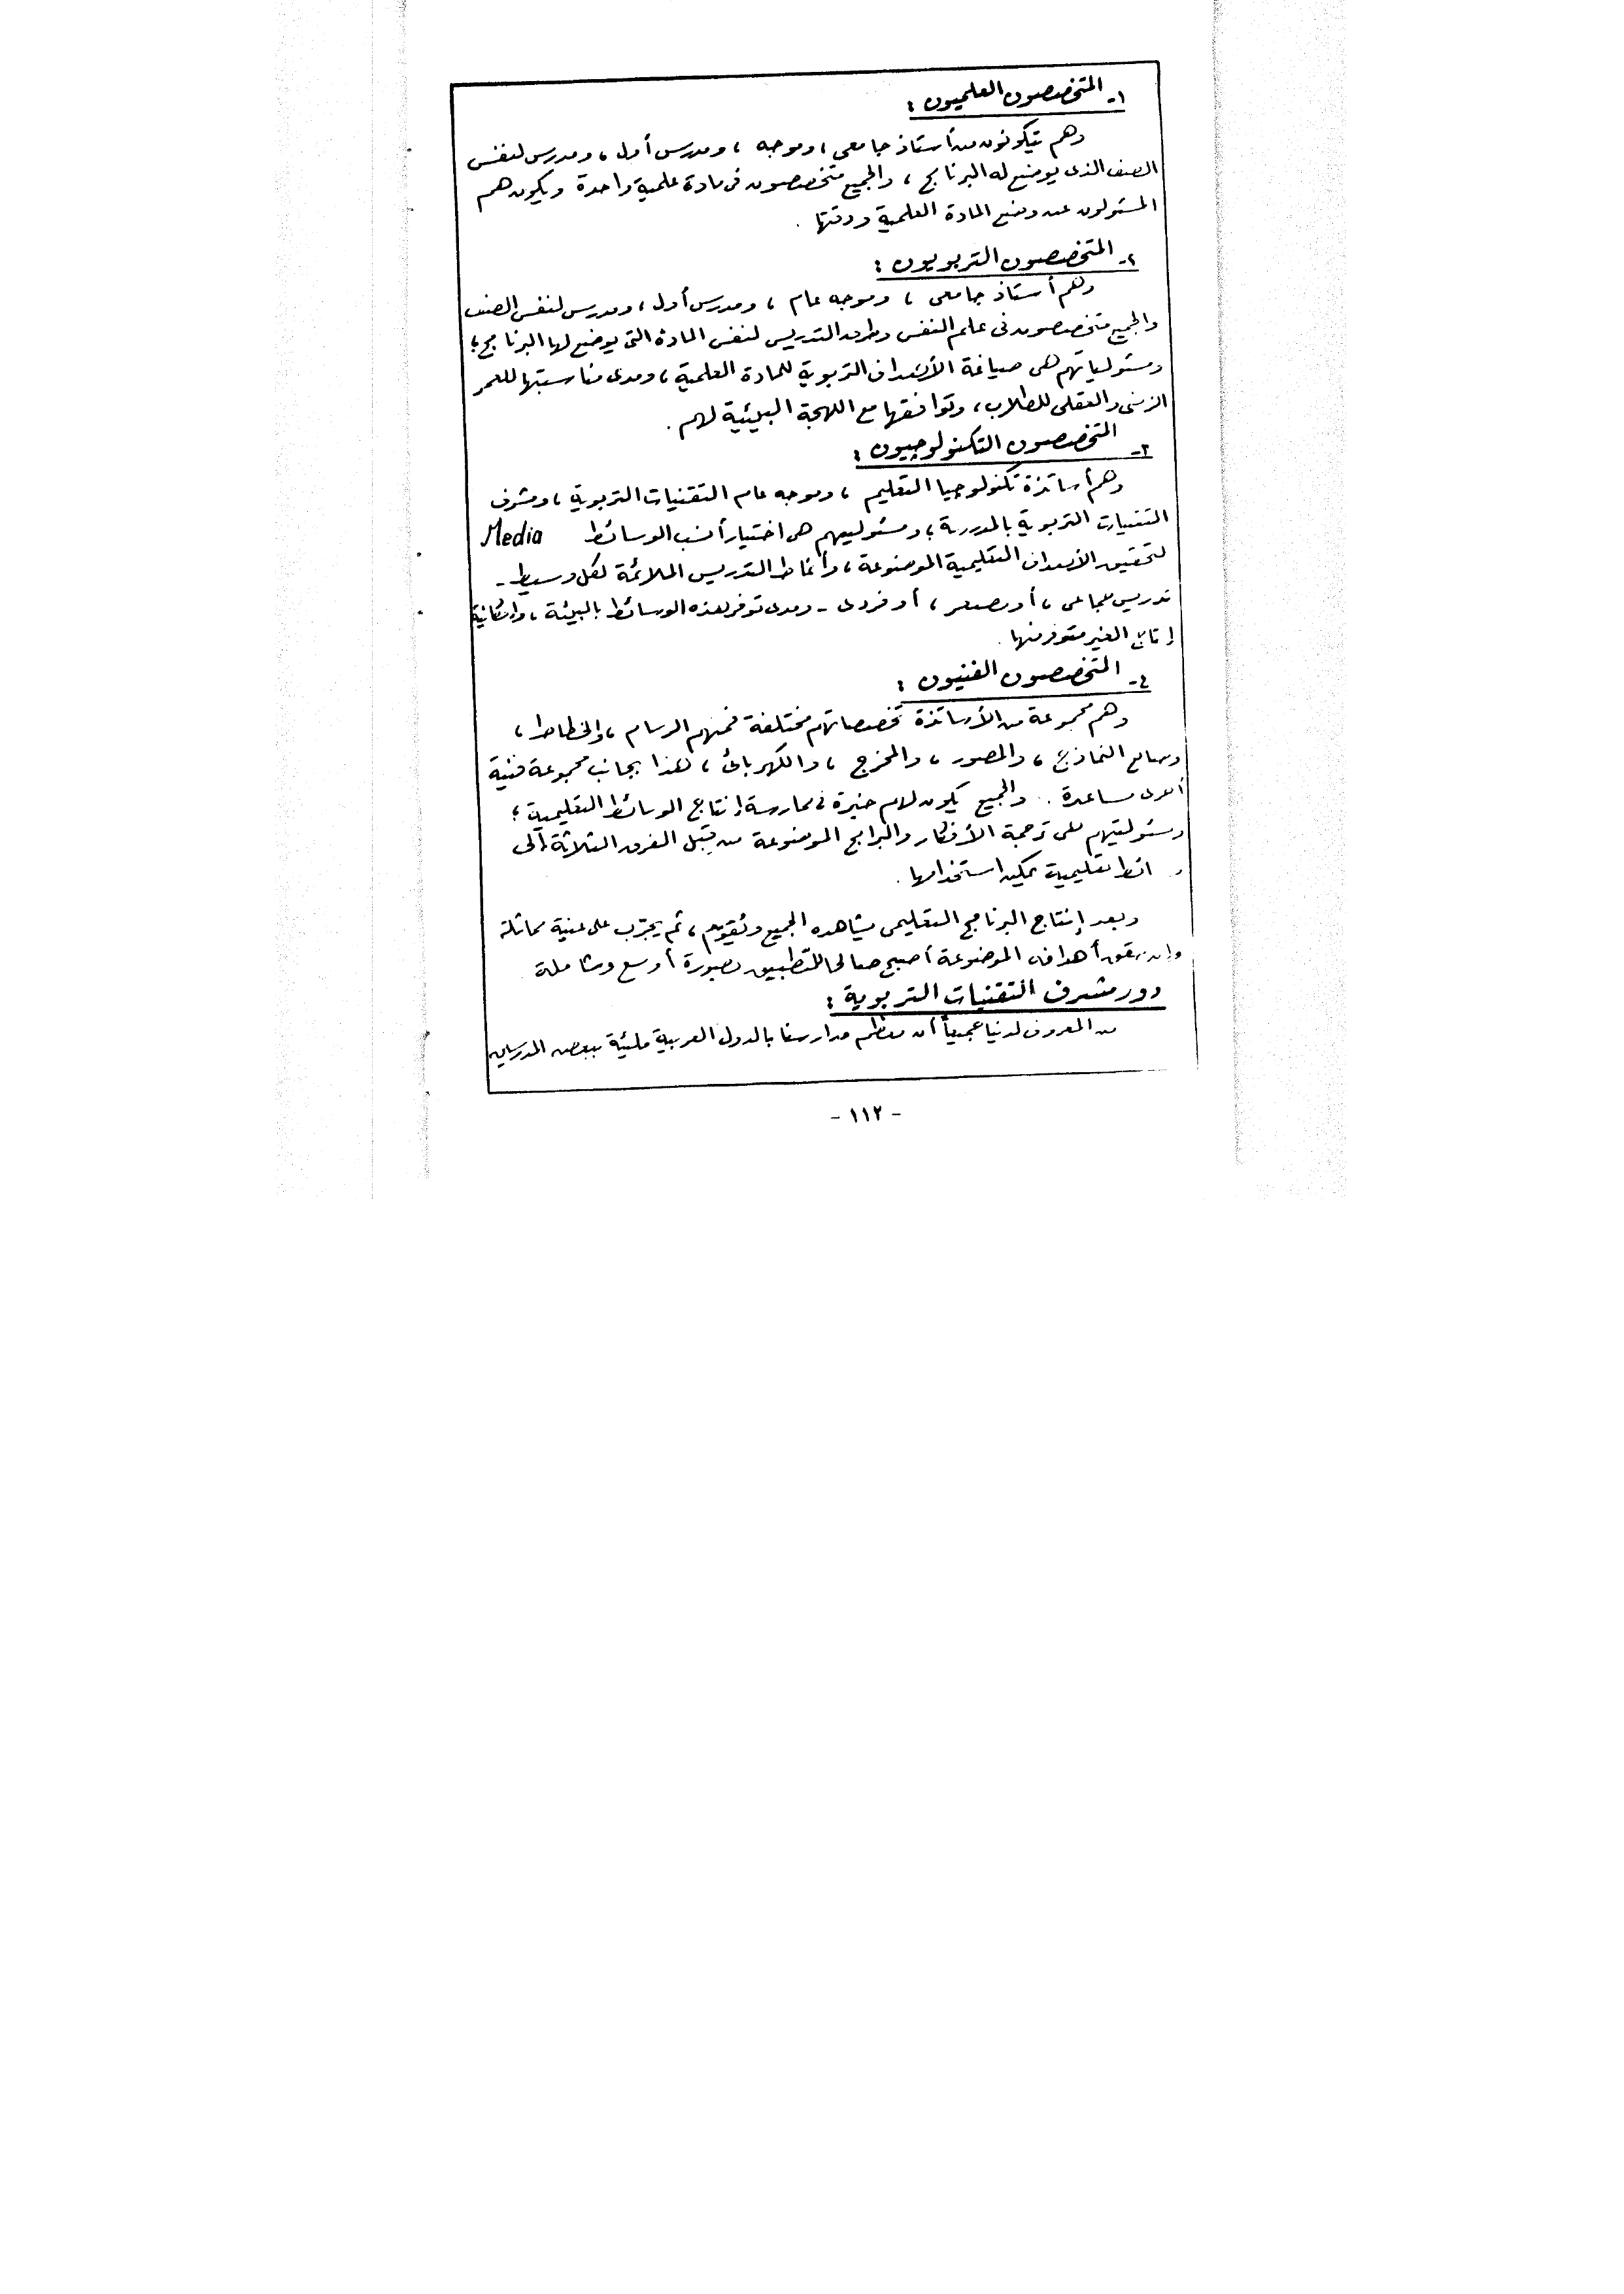 ١- المتخصصون العلميون :
وهم يتكونون من أستاذ جامعى ، وموجه ، ومدرس أول ، ومدرس لنفس
الصف الذى يوضع له البرنامج ، والجميع متخصصون فى مادة علمية واحدة ويكون هم
المسئولون عن وضع المادة العلمية ودقتها .
٢- المتخصصون التربويون :
وهم أستاذ جامعى ، وموجه عام ، ومدرس أول ، ومدرس لنفس الصف
والجميع متخصصون فى علم النفس وطرق التدريس لنفس المادة التى يوضع لها البرنامج ؛
ومسئولياتهم هى صياغة الأهداف التربوية للمادة العلمية ، ومدى مناسبتها للعمر
الزمنى والعقلى للطلاب ، وتوافقها مع اللهجة البيئية لهم .
٣- المتخصصون التكنولوجيون :
وهم أساتذة تكنولوجيا التعليم ، وموجه عام التقنيات التربوية ، ومشرف
التقنيات التربوية بالمدرسة ؛ ومسئوليهم هى اختيار أنسب الوسائط Media
لتحقيق الأهداف التعليمية الموضوعة ، وأنماط التدريس الملائمة لكل وسيط -
تدريس جماعى ، أو مصغر ، أو فردى - ومدى توفر هذه الوسائط بالبيئة ، وإمكانية
إنتاج الغير متوفر منها .
٤- المتخصصون الفنيون :
وهم مجموعة من الأساتذة تخصصاتهم مختلفة فمنهم الرسام ، والخطاط ،
وصانع النماذج ، والمصور ، والمخرج ، والكهربائى ، هذا بجانب مجموعة فنية
أخرى مساعدة . والجميع يكون لهم خبرة فى ممارسة إنتاج الوسائط التعليمية ؛
ومسئوليتهم هى ترجمة الأفكار والبرامج الموضوعة من قبل الفرق الثلاثة إلى
وسائط تعليمية يمكن استخدامها .
وبعد إنتاج البرنامج التعليمى يشاهده الجميع ويُقوّم ، ثم يجرّب على عينة مماثلة
وإن حقق أهدافه الموضوعة أصبح صالحا للتطبيق بصورة أوسع وشاملة
دور مشرف التقنيات التربوية :
من المعروف لدينا جميعاً أن معظم مدارسنا بالدول العربية مليئة ببعض المدرسين
- ١١٢ -